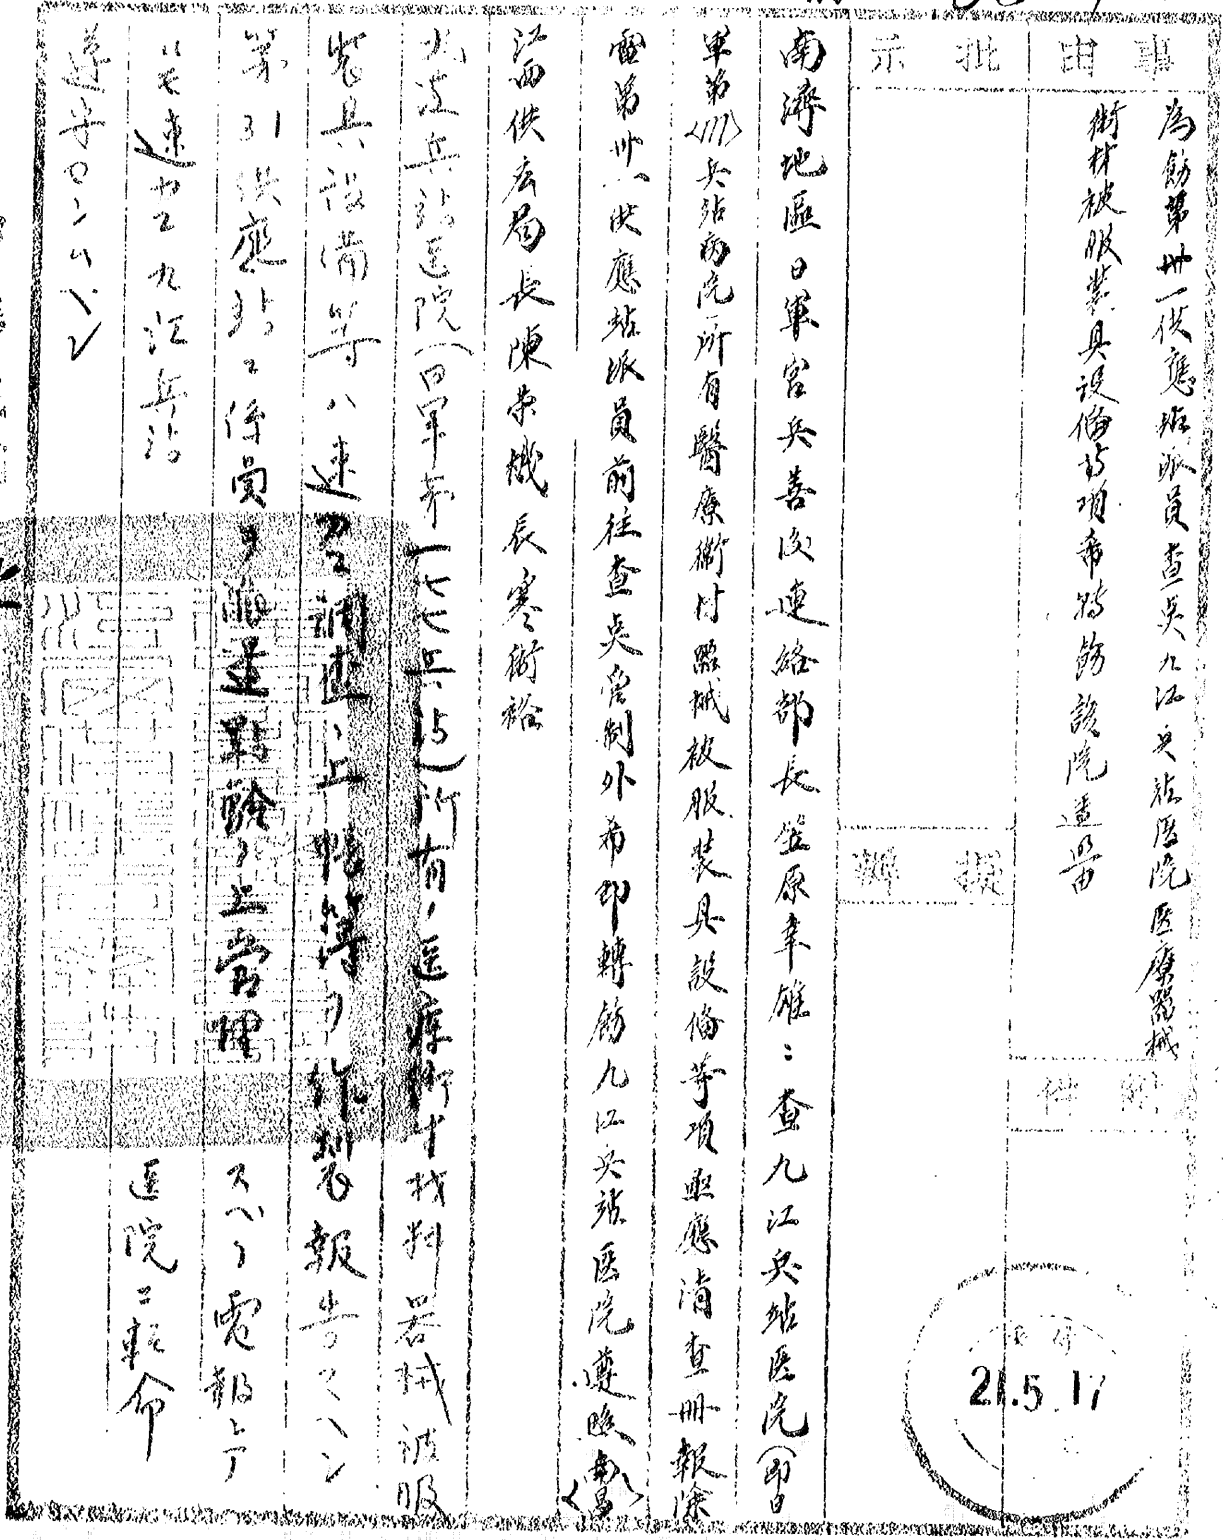 事由
批示
為飭第卅一供應站派員查點九江兵站医院医療器械
衛材被服裝具設備等項希轉飭該院遵照由
擬辦
附件
21.5.17
南潯地區日軍官兵善後連絡部長笠原幸雄：查九江兵站医院（即日
軍第〈177〉兵站病院）所有醫療衛材器械被服裝具設備等項亟應清查冊報除
電第卅一供應站派員前往查點管制外希即轉飭九江兵站医院遵照南昌
江西供应局長陳荣機辰寒衛裕
九江兵站医院（日軍第一七七兵站）所有ノ医療衛生材料器械被服
裝具設備等ハ速カニ調査ノ上帳簿ヲ作製報告スヘシ
第31供應站ニ係員ヲ派遣點驗ノ上管理スヘク電報シア
ハ速カニ九江兵站医院ニ轉命
遵守ロシムベシ